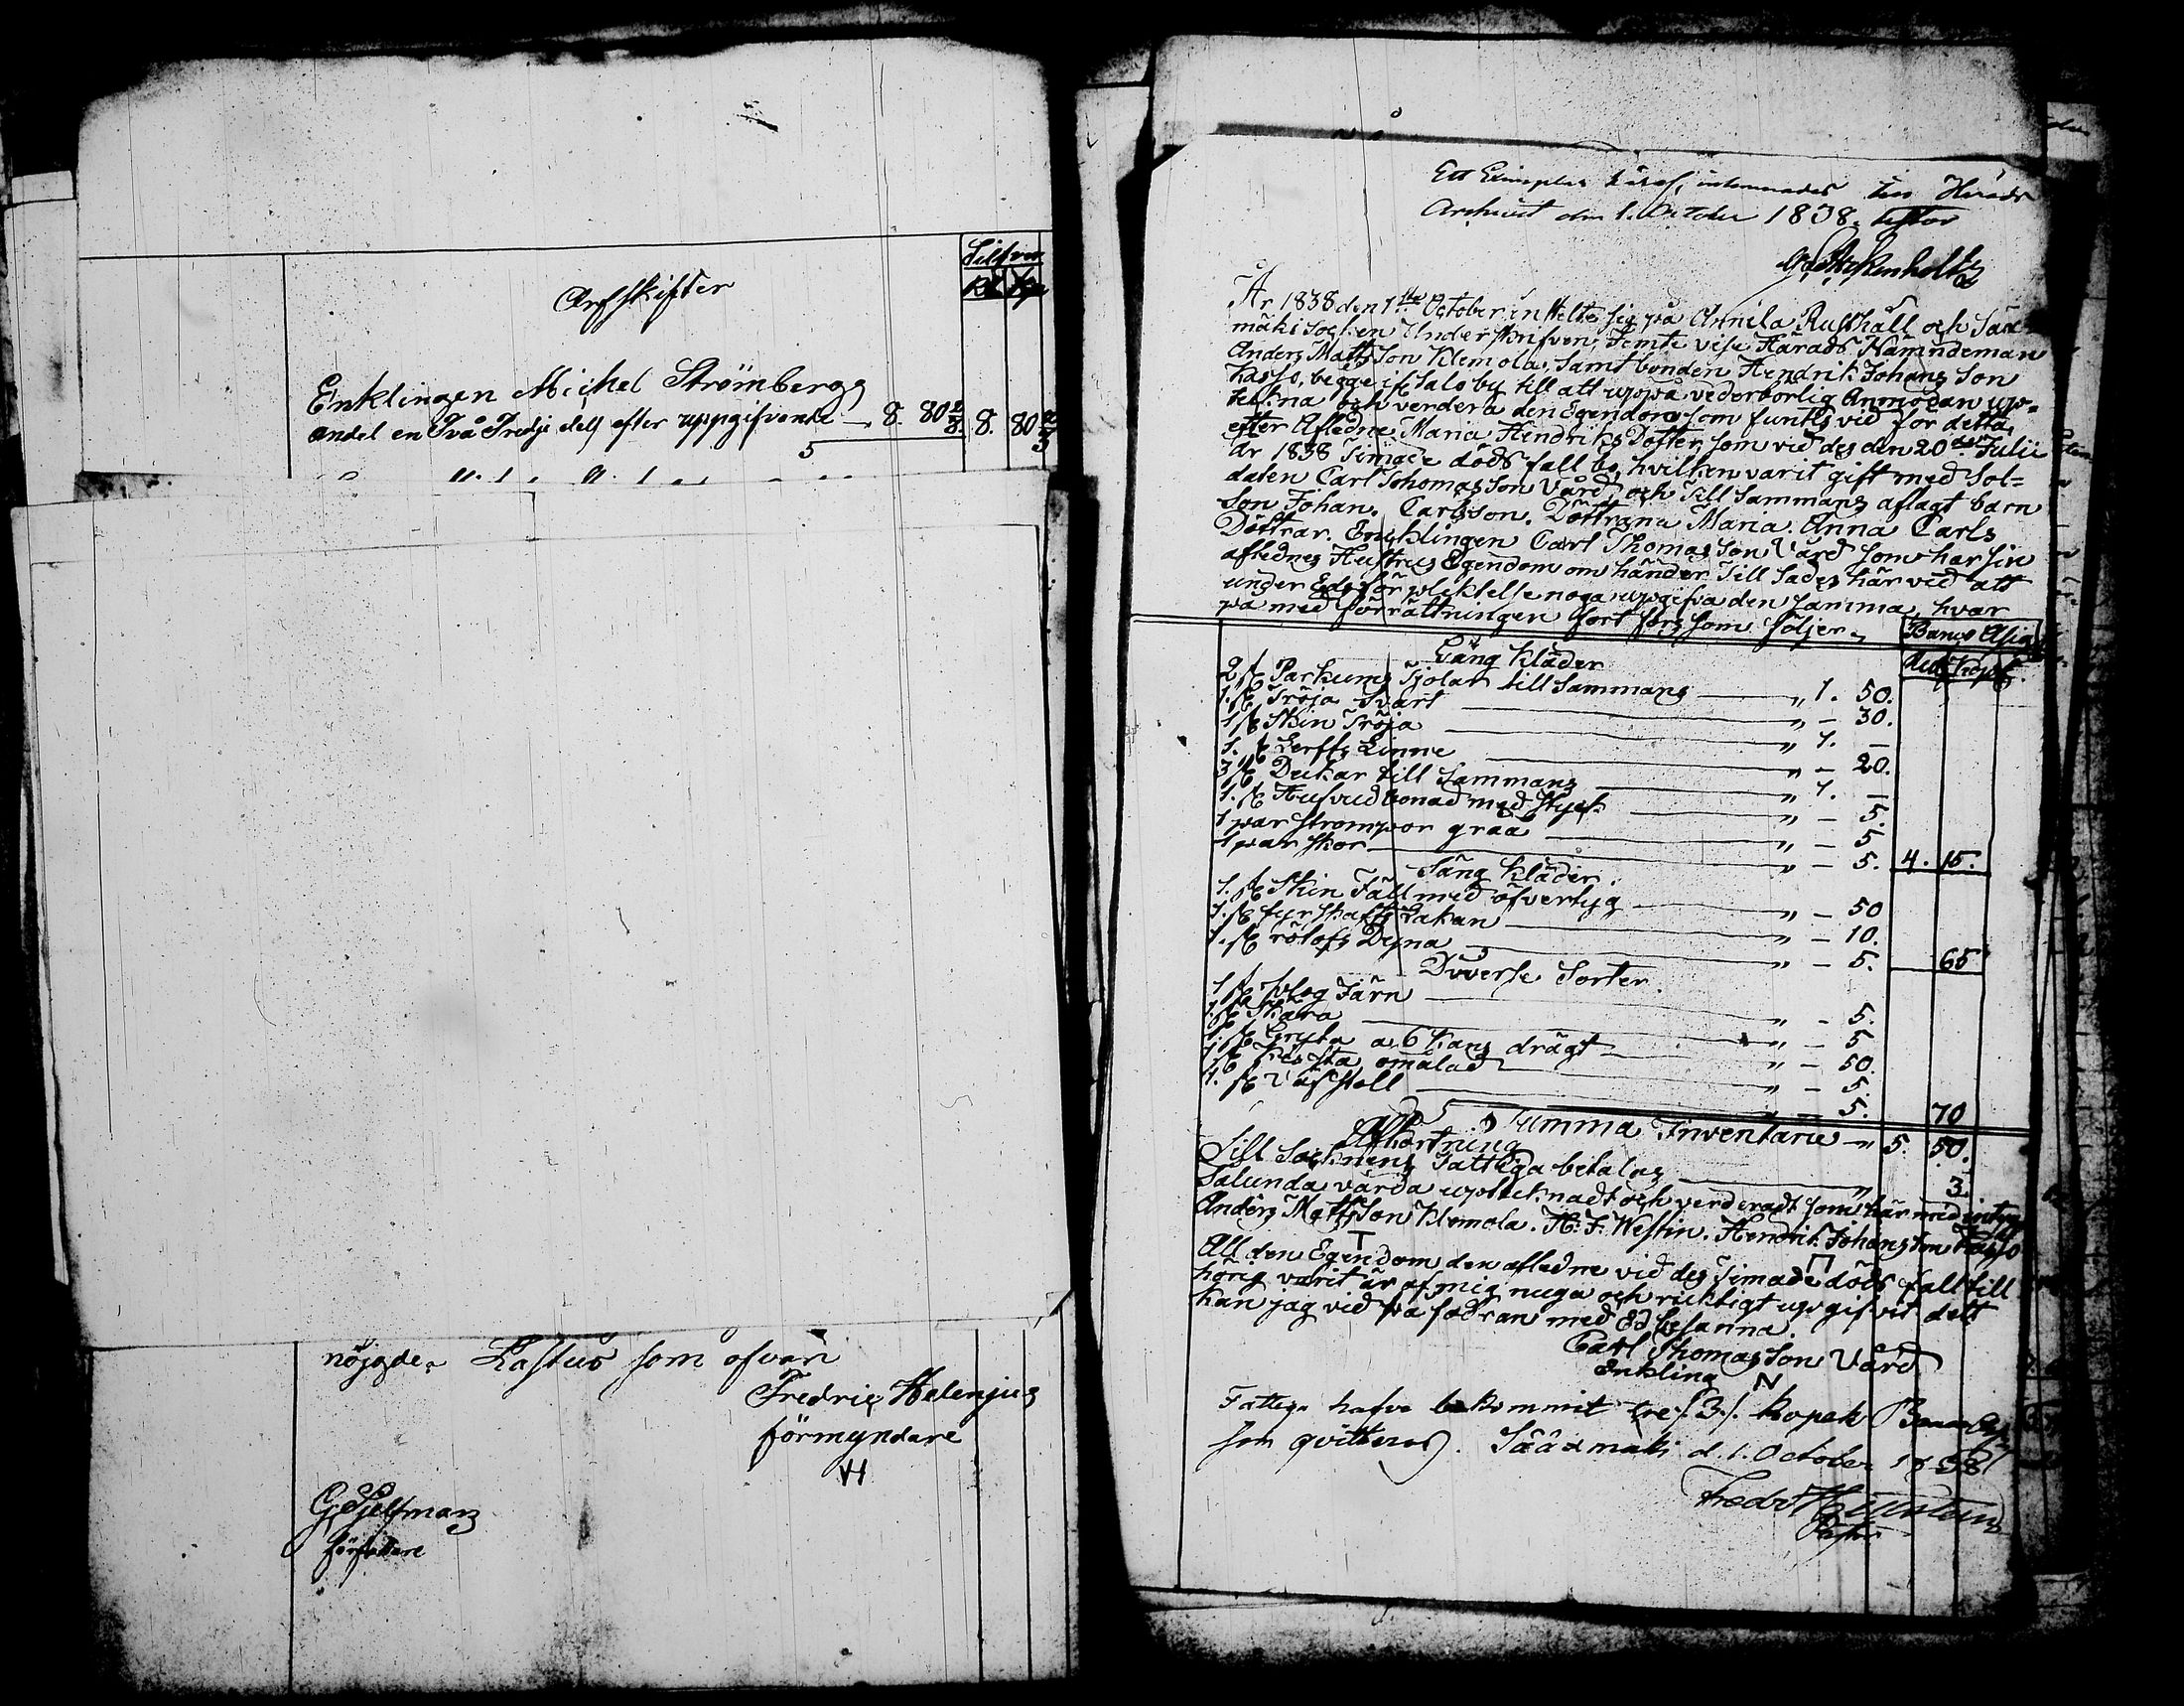 Silfver
Rbl Kop
Arfskifter
Enklingen Michel Strömbergs
andel en Två Tredje delf efter uppgifvente — 8. 80 2/3 8. 80 2/3
nöjgde. Kastus som ofvan
Fredric Helenjus
förmyndare
G. Hjeltman
författare
Ett Exemplar häraf, inlemnades till Härads
Archivet den 1. October 1838. testor
År 1838 den 1ste October instelte sig på Annila Rusthåll och Sääx-
mäki socken Underskrifven, Jemte vise Härads Nämndeman
Anders Matts Son Klemola, Samt bonden Hendrik Johans Son
Kasso, begge if. Salo by till att uppå vederbörlig Anmodan up-
tekna och verdera den Egendom som funtes vid för detta,
efter Afledne Maria Hendriks Dotter, som vid des den 20de Julii
år 1838 Timade döds fall bo, hvilken varit gift med Sol-
daten Carl Thomas Son Vård, och Till Sammans aflagt barn
Son Johan. Carlsson. Döttrana Maria. Anna Carls
Döttrar. Encklingen Carl Thomas Son Vård som har sin
aflednes Hustrus Egendom om händer Till Sades här vid att
under Eds förpliktelse noga upgifva den samma, hvar
på med förrättningen fort fors som följer.
Banco Asig
Rub Kopek.
Gång Kläder
2 st Parkums Tjolar till Sammans — " 1. 50.
1. st Tröja Svart — " — 30.
1 st Skin Tröja — " 1. —
1. st Lerfts Linne — " — 20.
3 st Dukar till Sammans — " 1. —
1. st Hufvud bonad med Styck — " — 5.
1 par Strompor gråa — " — 5
1 par Skor — " — 5. 4. 15.
Säng Kläder.
1. st Skin Fäll med öfvertyg — " — 50
1. st fyrskafts Lakan — " — 10.
1. st rölofs Dyna — " — 5. 65
Diverse Sorter.
1 st plog Järn — " — 5.
1. st Skära — " — 5
1. st Gryta a 6 kans drägt — " — 50.
1. st Kista omålad — " — 5.
1. st Väfstoll — 5. 70
Summa Inventarie — " 5. 50.
Afkortning
Till Socknens Fattiga betalas — " 3.
Salunda vårda uptecknadt och verderadt som här med intyga
Anders Matts Son Klemola. H: F. Westin. Hendrik Johans Son Kasso
All den Egendom den afledne vid des Timade döds fall till
hörig varit är af mig nuga och ricktigt upgifvit dett
kan jag vid påfodran med Ed besanna.
Carl Thomas Son Vård
Enkling
N
Fattige hafva bekommit tre /3/. kopek Banco Asig
som qvitteras. Sääxmäki d. 1. October 1838
Pastor